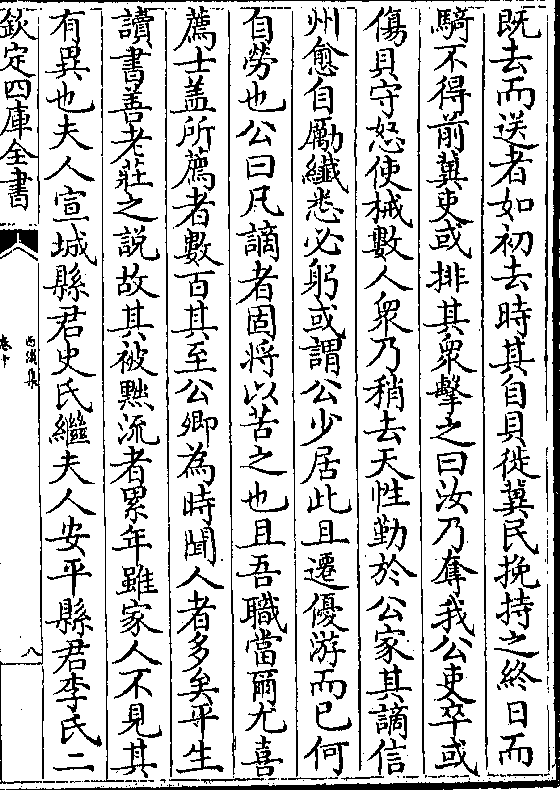 既去而送者如初去時其自貝徙冀民挽持之終日而
騎不得前冀吏或排其衆擊之曰汝乃奪我公吏卒或
傷貝守怒使械數人衆乃稍去天性勤於公家其謫信
州愈自勵纎悉必躬或謂公少居此且遷優游而已何
自勞也公曰凡謫者固將以苦之也且吾職當爾尤喜
薦士盖所薦者數百其至公卿為時聞人者多矣平生
讀書善老莊之説故其被黜流者累年雖家人不見其
有異也夫人宣城縣君史氏繼夫人安平縣君李氏二
欽定四庫全書
西溪集
卷十
八